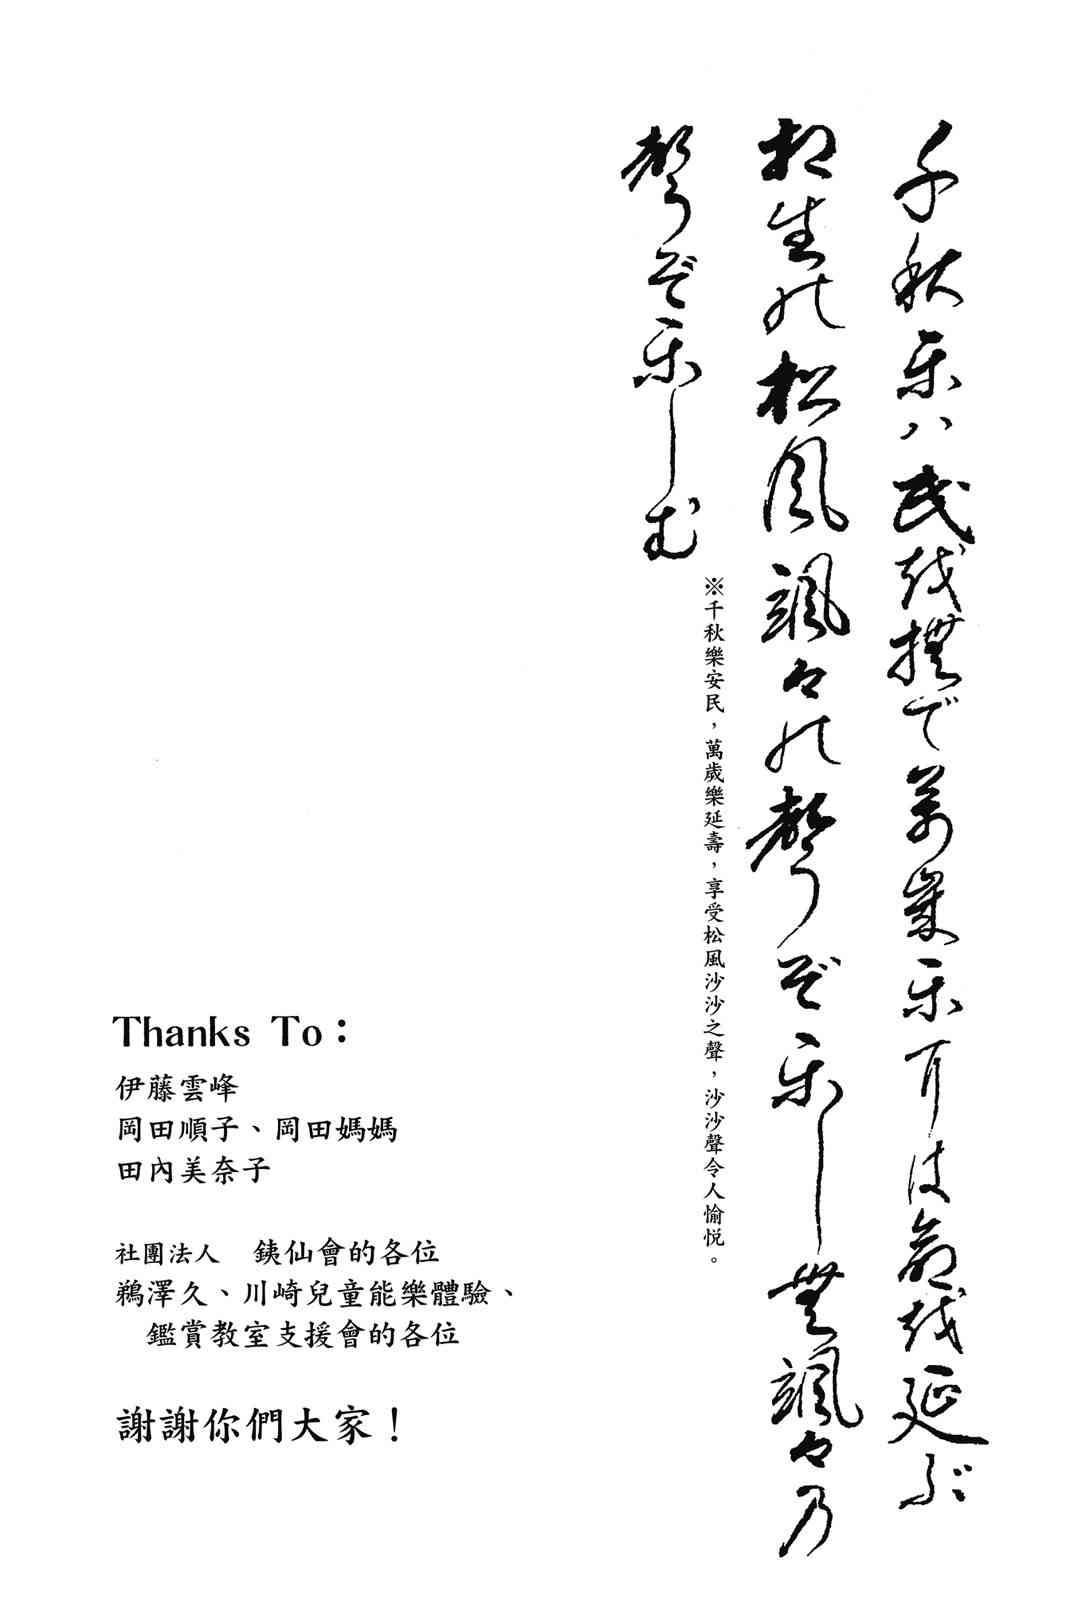 千秋乐ハ民越撫で万歳乐耳は命越延ぶ
相生能松風颯々能聲ぞ乐しむ颯々乃
聲ぞ乐しむ
※千秋樂安民，萬歲樂延壽，享受松風沙沙之聲，沙沙聲令人愉悅。
Thanks To：
伊藤雲峰
岡田順子、岡田媽媽
田內美奈子
社團法人　銕仙會的各位
鵜澤久、川崎兒童能樂體驗、
鑑賞教室支援會的各位
謝謝你們大家！